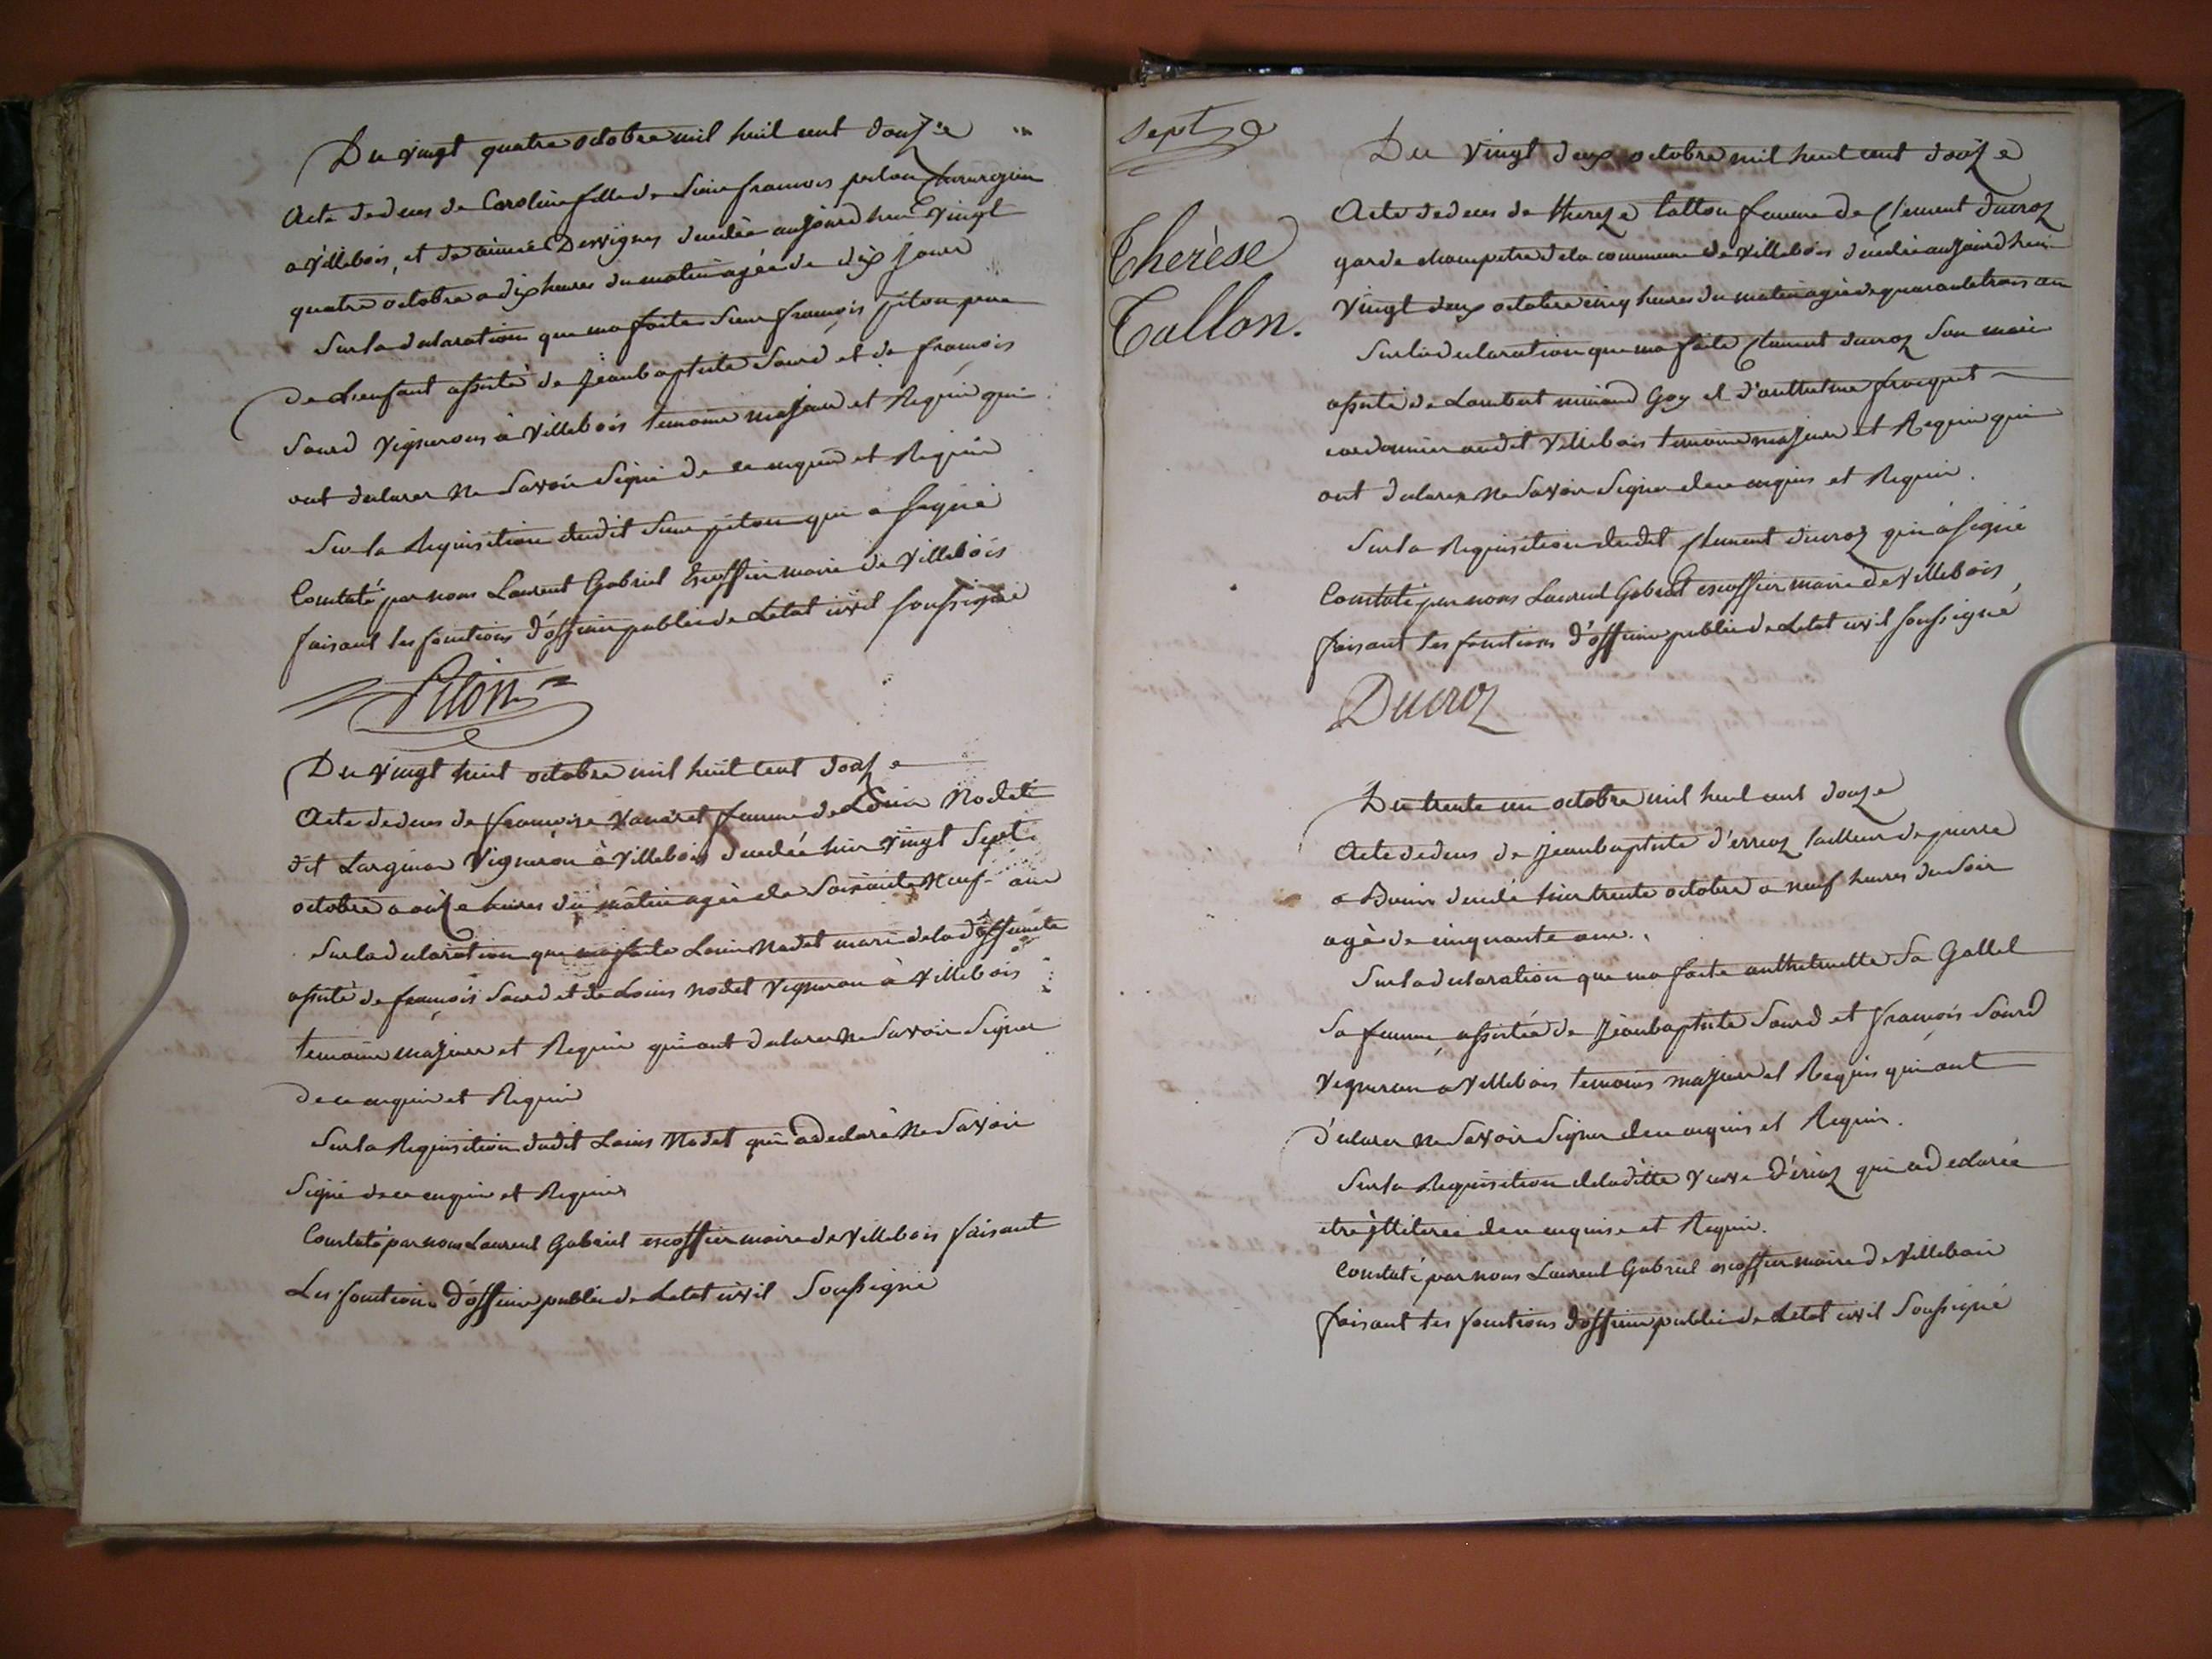 Du vingt quatre octobre mil huit cent douze
Acte de deces de Caroline fille de Sieur françois pilon Chirurgien
a Villebois, et de aimée Desvignes decedée aujourdhui Vingt
quatre octobre a dix heures du matin agée de dix jours
Sur la declaration que ma faite Sieur françois pilon pere
de L'enfant assisté de Jean baptiste Sourd et de françois
Sourd Vignerons à Villebois temoins majeurs et Requis qui
ont declarer ne Savoir Signé de ce enquis et Requis
Sur la Requisition dudit Sieur pilon qui a Signé
Constaté par nous Laurent Gabriel Escoffier maire de Villebois
faisant les fonctions d'officier public de Letat civil soussigné
Pilon
Du Vingt huit octobre mil huit cent douze
Acte de deces de françoise Vanaret femme de Louis Nodet
dit Vigneron à Villebois decedée hier vingt Sept
octobre a onze heures du matin agée de Soixante Neuf ans
Sur la declaration que ma faite Louis Nodet mari de la deffuncte
assisté de françois Sourd et de Louis nodet Vigneron à Villebois
temoins majeurs et Requis qui ont declarer ne Savoir Signer
de ce enquis et Requis
Sur la Requisition dudit Louis Nodet qui a declaré Ne Savoir
Signé de ce enquis et Requis
Constaté par nous Laurent Gabriel escoffier maire de Villebois faisant
Les fonctions d'officier public de Letat civil Soussigné
Septe
Therèse
Tallon.
Du Vingt deux octobre mil huit cent douze
Acte de deces de thereze tallon femme de Clement ducroz
garde champetre de la commune de Villebois decedée aujourdhui
Vingt deux octobre cinq heures du matin agée de quarante trois ans
Sur la declaration que ma faite Clement ducroz Son mari
assisté de Lambert Goy et d'anthelme
cordonnier audit Villebois temoins majeurs et Requis qui
ont declarer ne Savoir Signer de ce enquis et Requis.
Sur la Requisition dudit Clement ducroz qui a signé
Constaté par nous Laurent Gabriel escoffier maire de Villebois
faisant les fonctions d'officier public de Letat civil soussigné
Ducroz
Du trente un octobre mil huit cent douze
Acte de deces de Jean baptiste d'errioz tailleur de pierre
a Bouis decedé hier trente octobre a neuf heures du Soir
agé de cinquante ans.
Sur la declaration que ma faite anthelmette
Sa femme, assistée de Jean baptiste Sourd et françois Sourd
Vigneron a Villebois temoins majeur et Requis qui ont
d'eclarer ne Savoir Signer de ce enquis et Requis.
Sur la Requisition de ladite veuve d'érioz qui a declarée
etre illiteree de ce enquise et Requis.
Constaté par nous Laurent Gabriel escoffier maire de Villebois
faisant les fonctions d'officier public de Letat civil Soussigné